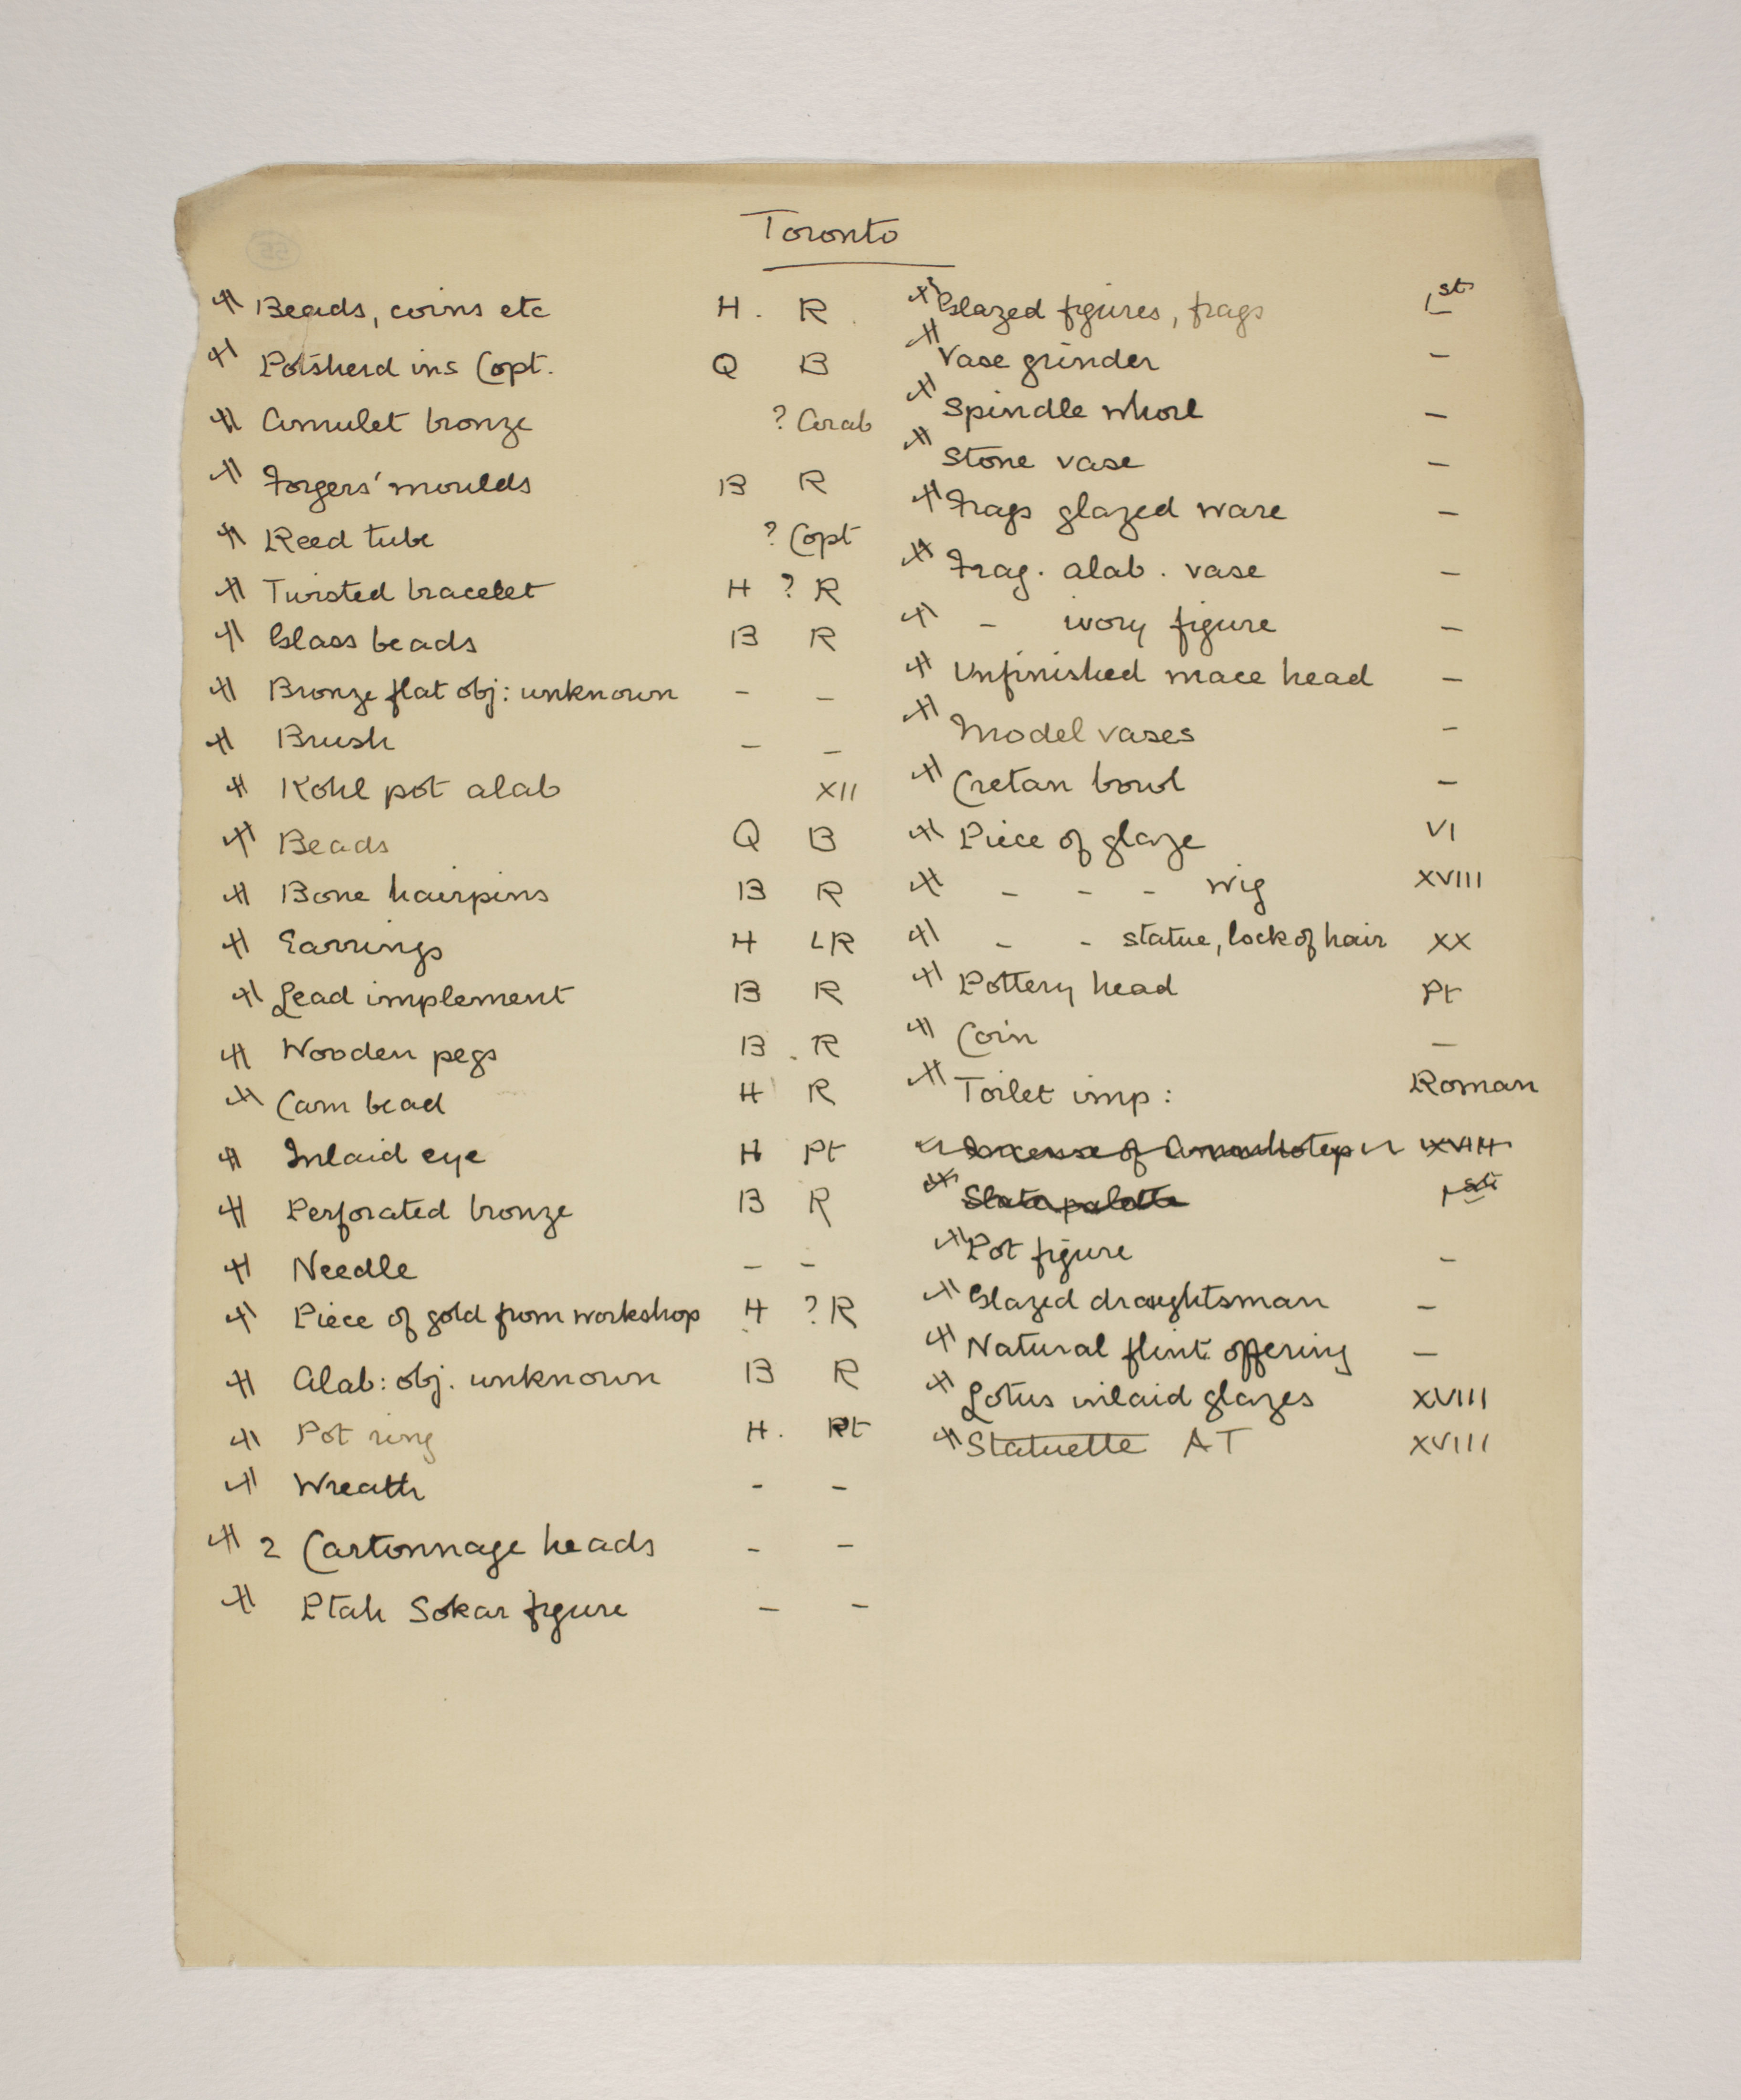 Toronto
Beads, coins etc H. R.
Potsherd ins Copt. Q B
Amulet bronze ? Arab
Forgers' moulds B R
Reed tube ? Copt
Twisted bracelet H ? R
Glass beads B R
Bronze flat obj: unknown - -
Brush - -
Kohl pot alab XII
Beads Q B
Bone hairpins B R
Earrings H LR
Lead implement B R
Wooden pegs B. R
Carn bead H R
Inlaid eye H Pt
Perforated bronze B R
Needle - -
Piece of gold from workshop H ? R
Alab: obj. unknown B R
Pot ring H. Pt
Wreath - -
2 Cartonnage heads - -
Ptah Sokar figure - -
Glazed figures, frags 1st
Vase grinder -
Spindle whorl -
Stone vase -
Frags glazed ware -
Frag. alab. vase -
- ivory figure -
Unfinished mace head -
Model vases -
Cretan bowl -
Piece of glaze VI
- - - wig XVIII
- - statue, lock of hair XX
Pottery head Pt
Coin -
Toilet imp: Roman
Incense of Amenhotep II XVIII
Slate palette 1st
Pot figure -
Glazed draughtsman -
Natural flint offering -
Lotus inlaid glazes XVIII
Statuette AT XVIII